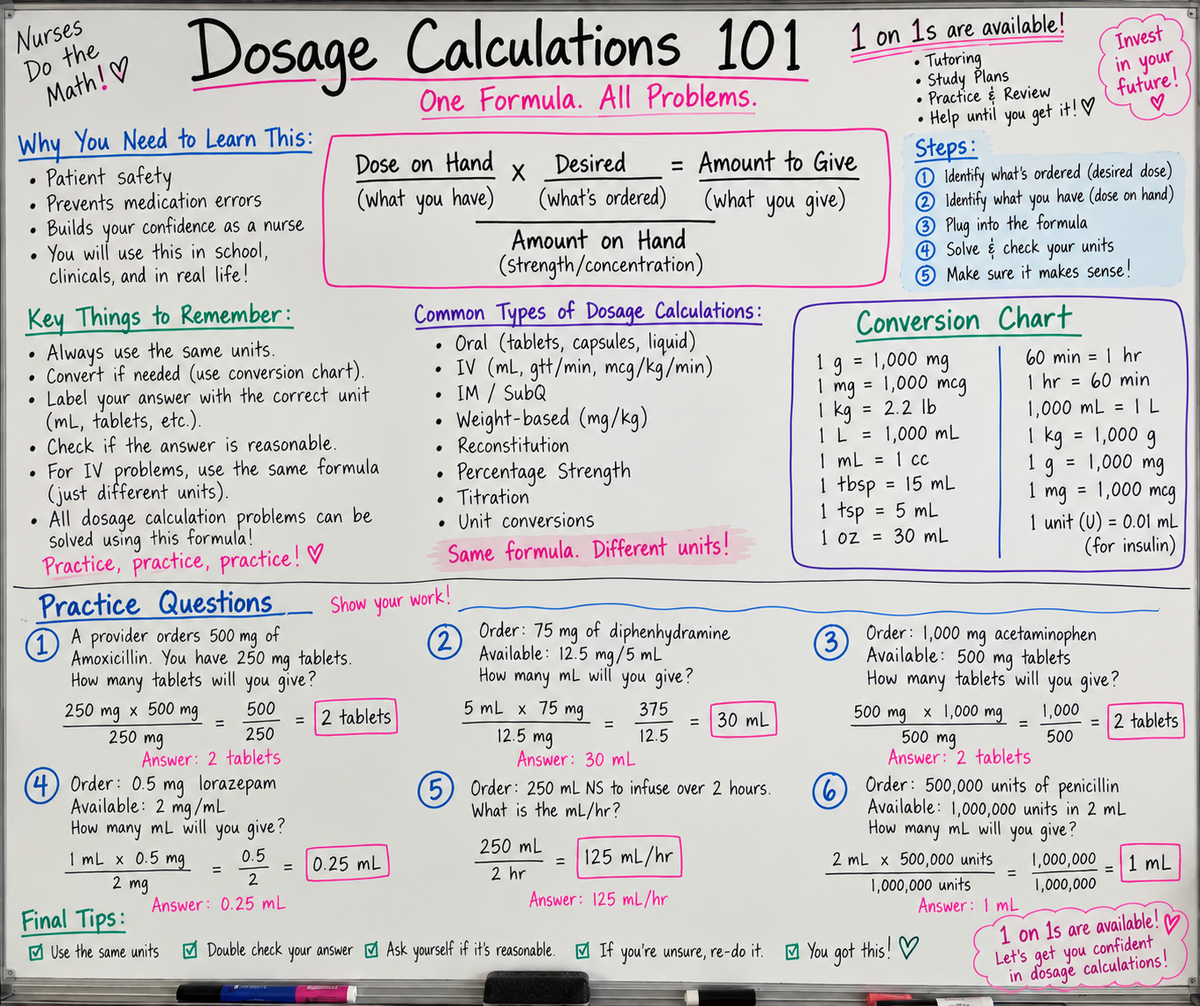 Nurses
Do the
Math! ♡
Dosage Calculations 101
One Formula. All Problems.
1 on 1s are available!
• Tutoring
• Study Plans
• Practice & Review
• Help until you get it! ♡
Invest
in your
future!
♡
Why You Need to Learn This:
• Patient safety
• Prevents medication errors
• Builds your confidence as a nurse
• You will use this in school,
clinicals, and in real life!
Dose on Hand x Desired = Amount to Give
(what you have) (what's ordered) (what you give)
Amount on Hand
(strength/concentration)
Steps:
1 Identify what's ordered (desired dose)
2 Identify what you have (dose on hand)
3 Plug into the formula
4 Solve & check your units
5 Make sure it makes sense!
Key Things to Remember:
• Always use the same units.
• Convert if needed (use conversion chart).
• Label your answer with the correct unit
(mL, tablets, etc.).
• Check if the answer is reasonable.
• For IV problems, use the same formula
(just different units).
• All dosage calculation problems can be
solved using this formula!
Practice, practice, practice! ♡
Common Types of Dosage Calculations:
• Oral (tablets, capsules, liquid)
• IV (mL, gtt/min, mcg/kg/min)
• IM / SubQ
• Weight-based (mg/kg)
• Reconstitution
• Percentage Strength
• Titration
• Unit conversions
Same formula. Different units!
Conversion Chart
1 g = 1,000 mg
1 mg = 1,000 mcg
1 kg = 2.2 lb
1 L = 1,000 mL
1 mL = 1 cc
1 tbsp = 15 mL
1 tsp = 5 mL
1 oz = 30 mL
60 min = 1 hr
1 hr = 60 min
1,000 mL = 1 L
1 kg = 1,000 g
1 g = 1,000 mg
1 mg = 1,000 mcg
1 unit (U) = 0.01 mL
(for insulin)
Practice Questions Show your work!
1 A provider orders 500 mg of
Amoxicillin. You have 250 mg tablets.
How many tablets will you give?
250 mg x 500 mg = 500 = 2 tablets
250 mg 250
Answer: 2 tablets
2 Order: 75 mg of diphenhydramine
Available: 12.5 mg/5 mL
How many mL will you give?
5 mL x 75 mg = 375 = 30 mL
12.5 mg 12.5
Answer: 30 mL
3 Order: 1,000 mg acetaminophen
Available: 500 mg tablets
How many tablets will you give?
500 mg x 1,000 mg = 1,000 = 2 tablets
500 mg 500
Answer: 2 tablets
4 Order: 0.5 mg lorazepam
Available: 2 mg/mL
How many mL will you give?
1 mL x 0.5 mg = 0.5 = 0.25 mL
2 mg 2
Answer: 0.25 mL
5 Order: 250 mL NS to infuse over 2 hours.
What is the mL/hr?
250 mL = 125 mL/hr
2 hr
Answer: 125 mL/hr
6 Order: 500,000 units of penicillin
Available: 1,000,000 units in 2 mL
How many mL will you give?
2 mL x 500,000 units = 1,000,000 = 1 mL
1,000,000 units 1,000,000
Answer: 1 mL
Final Tips:
☑ Use the same units ☑ Double check your answer ☑ Ask yourself if it's reasonable. ☑ If you're unsure, re-do it. ☑ You got this! ♡
1 on 1s are available! ♡
Let's get you confident
in dosage calculations!